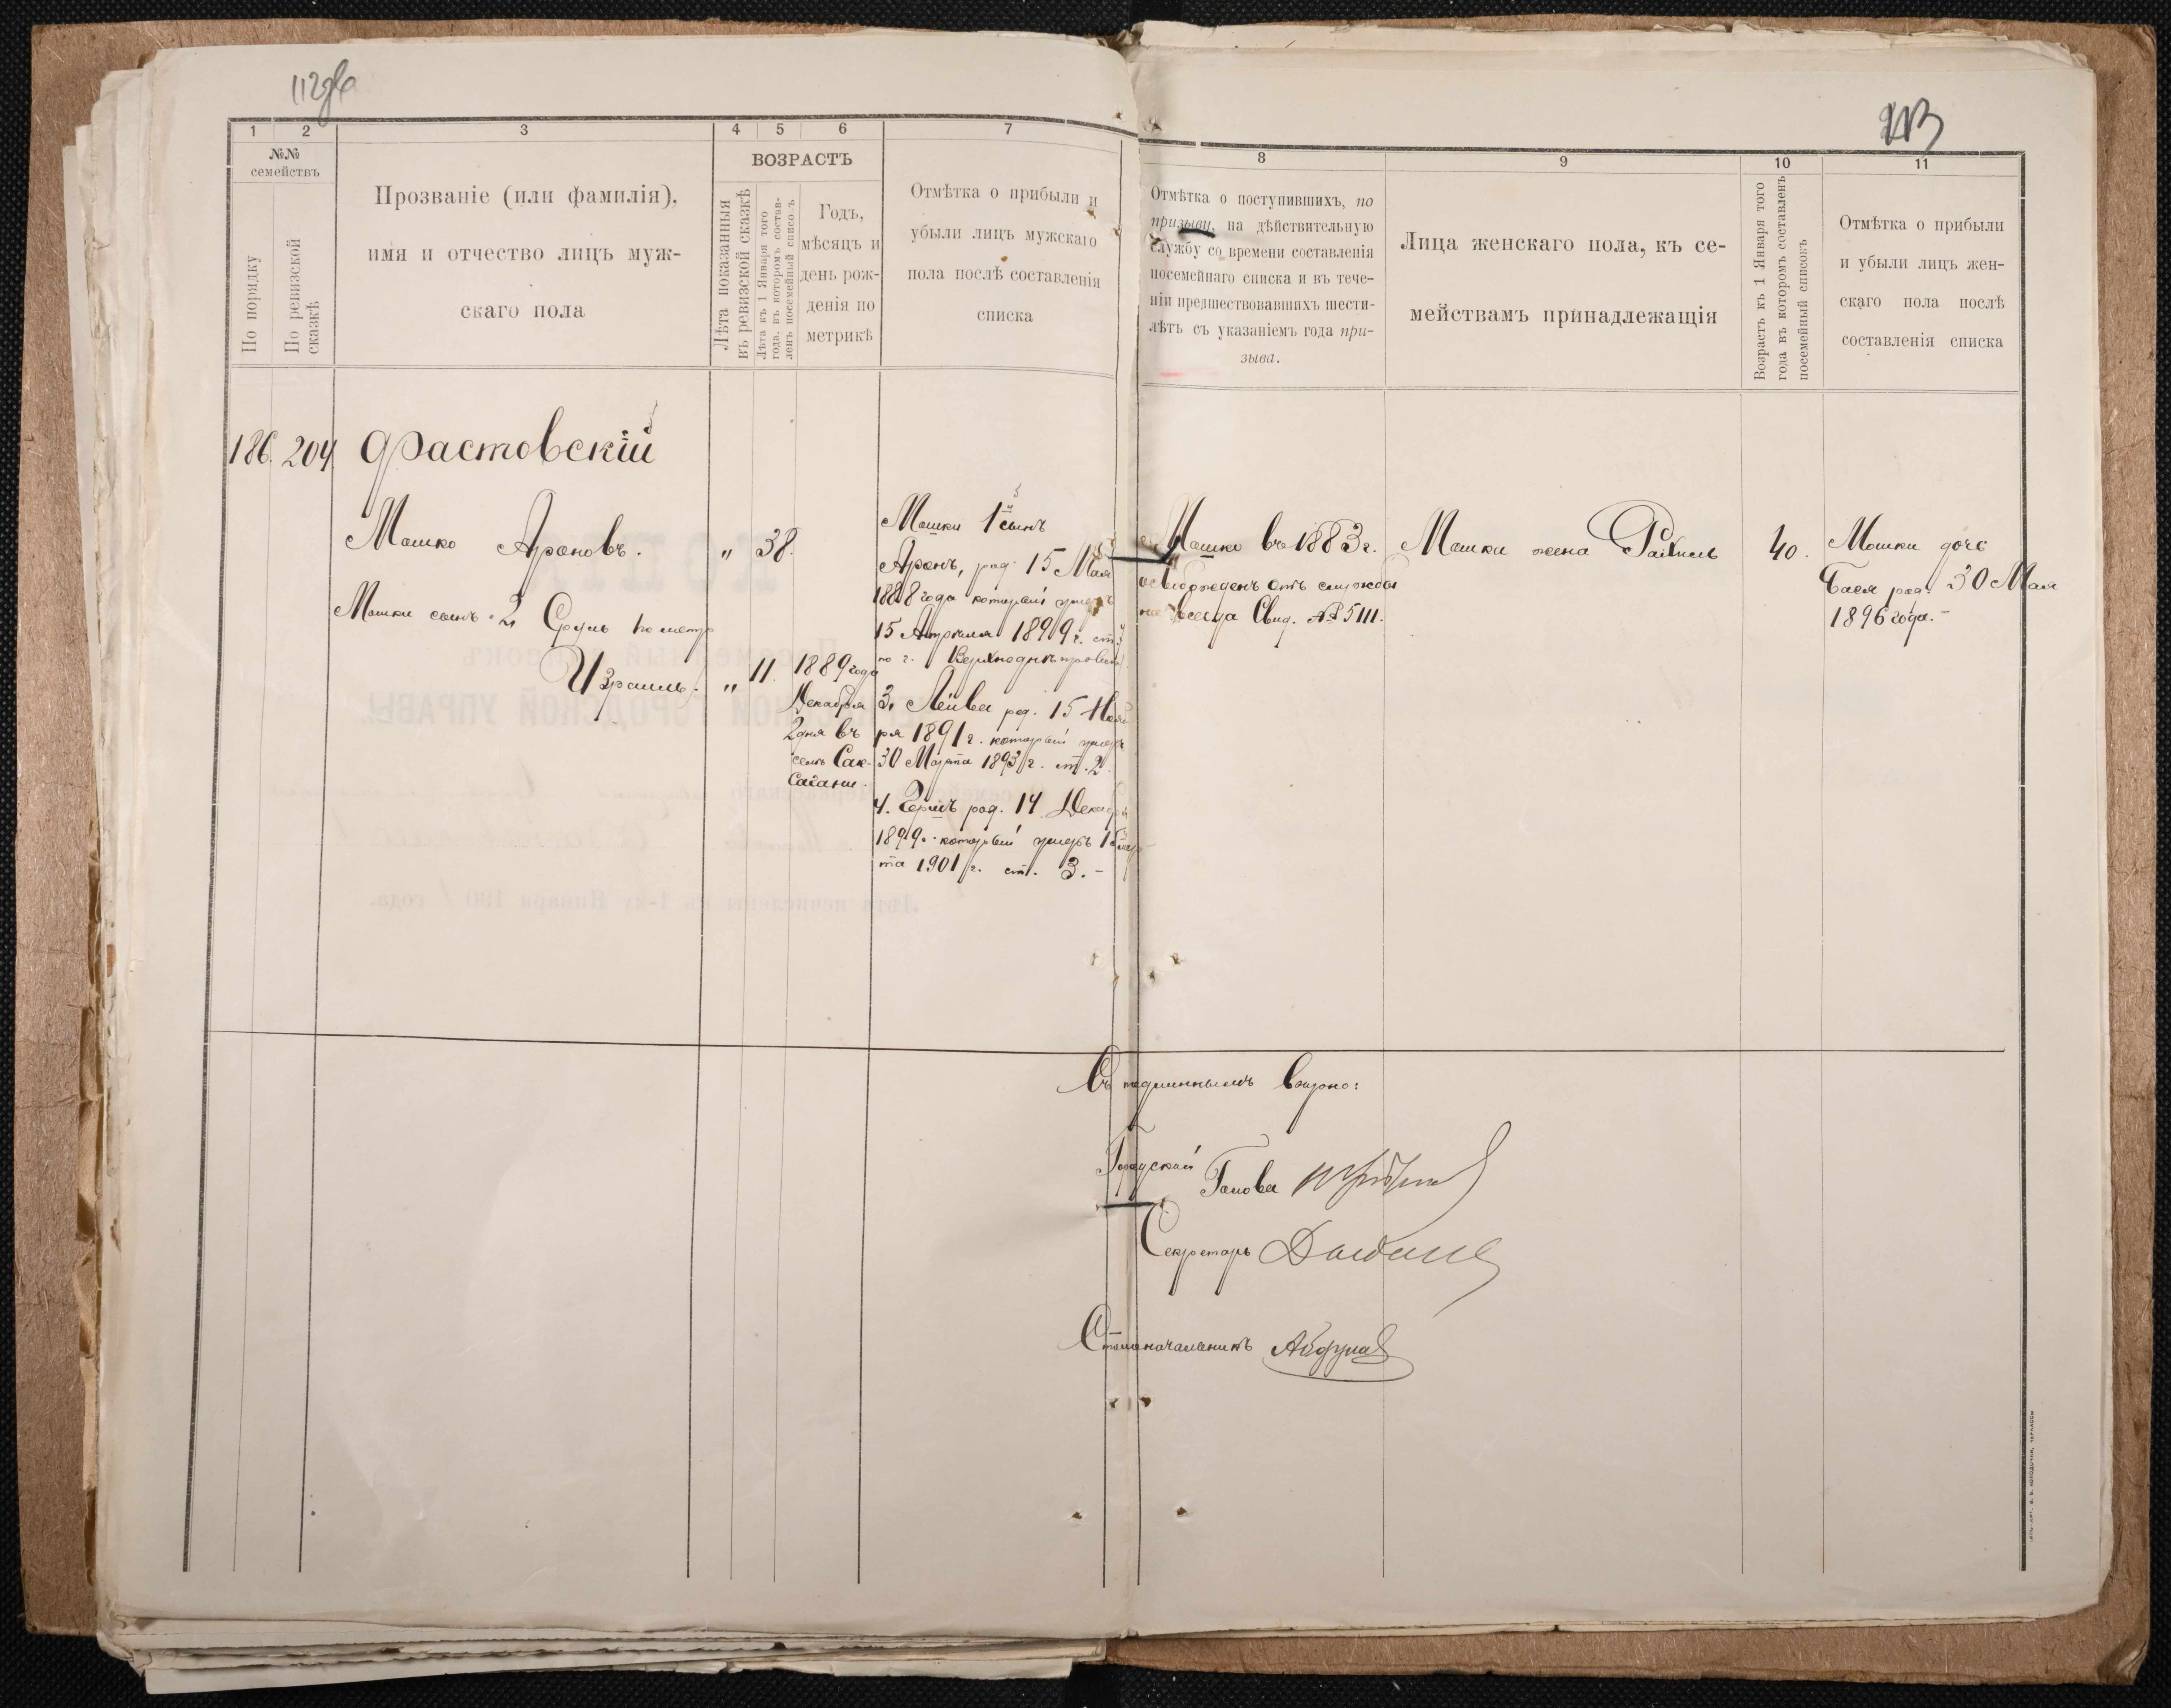 112
213
1 2 3 4 5 6 7
№№
семействъ
По порядку
По ревизской
сказкѣ
Прозваніе (или фамилія),
имя и отчество лицъ муж-
скаго пола
ВОЗРАСТЪ
Лѣта показанныя
въ ревизской сказкѣ
Лѣта къ 1 Января того
года, въ которомъ состав-
ленъ посемейный списокъ
Годъ,
мѣсяцъ и
день рож-
денія по
метрикѣ
Отмѣтка о прибыли и
убыли лицъ мужскаго
пола послѣ составленія
списка
8 9 10 11
Отмѣтка о поступившихъ, по
призыву, на дѣйствительную
службу со времени составленія
посемейнаго списка и въ тече-
ніи предшествовавшихъ шести-
лѣтъ съ указаніемъ года при-
зыва.
Лица женскаго пола, къ се-
мействамъ принадлежащія
Возрастъ къ 1 Января того
года въ которомъ составленъ
посемейный списокъ
Отмѣтка о прибыли
и убыли лицъ жен-
скаго пола послѣ
составленія списка
186. 204 Фастовскій
Мошко Ароновъ. " 38.
Мошки сынъ 2, Сруль по метр
Израиль. " 11.
1889 года
Декабря
2 дня въ
селѣ Сак-
сагани.
Мошки 1й сынъ
Аронъ, род. 15 Мая
1888 года который умеръ
15 Апрѣля 1899 г. ст. 3
по г. Верхнеднѣпровску
3, Лейба род. 15 Нояб
ря 1891 г. который умеръ
30 Марта 1893 г. ст. 2.
4. Гершъ род. 14 Декабря
1899 г. который умеръ 15 мар-
та 1901 г. ст. 3. -
Мошко въ 1883 г.
освобожденъ отъ службы
навсегда Свид. № 5111.
Мошки жена Рахиль 40.
Мошки дочь
Бася род. 30 Мая
1896 года. -
Съ подлиннымъ вѣрно:
Городской Голова
Секретарь
Столоначальникъ